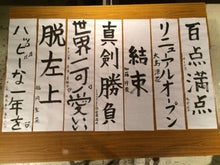 百点満点
リニューアルオープン
大島涼花
結束
真剣勝負
世界一可愛い
脱左上
ハッピーな一年を